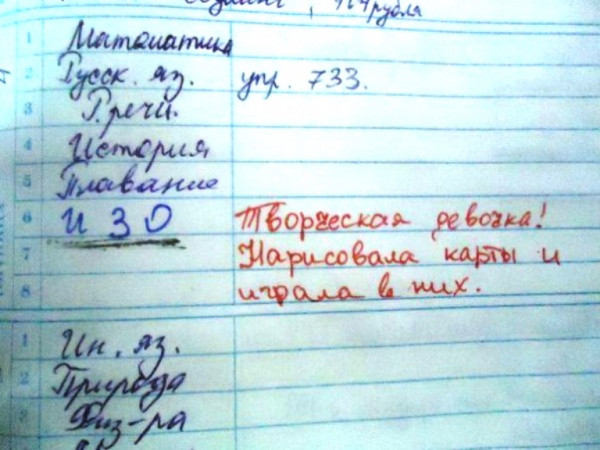 рубля
1 Математика
2 Русск. яз. упр. 733.
3 Р.речи.
4 История
5 Плавание
6 ИЗО Творческая девочка!
7 Нарисовала карты и
8 играла в них.
1 Ин. яз.
2 Природа
3 Физ-ра